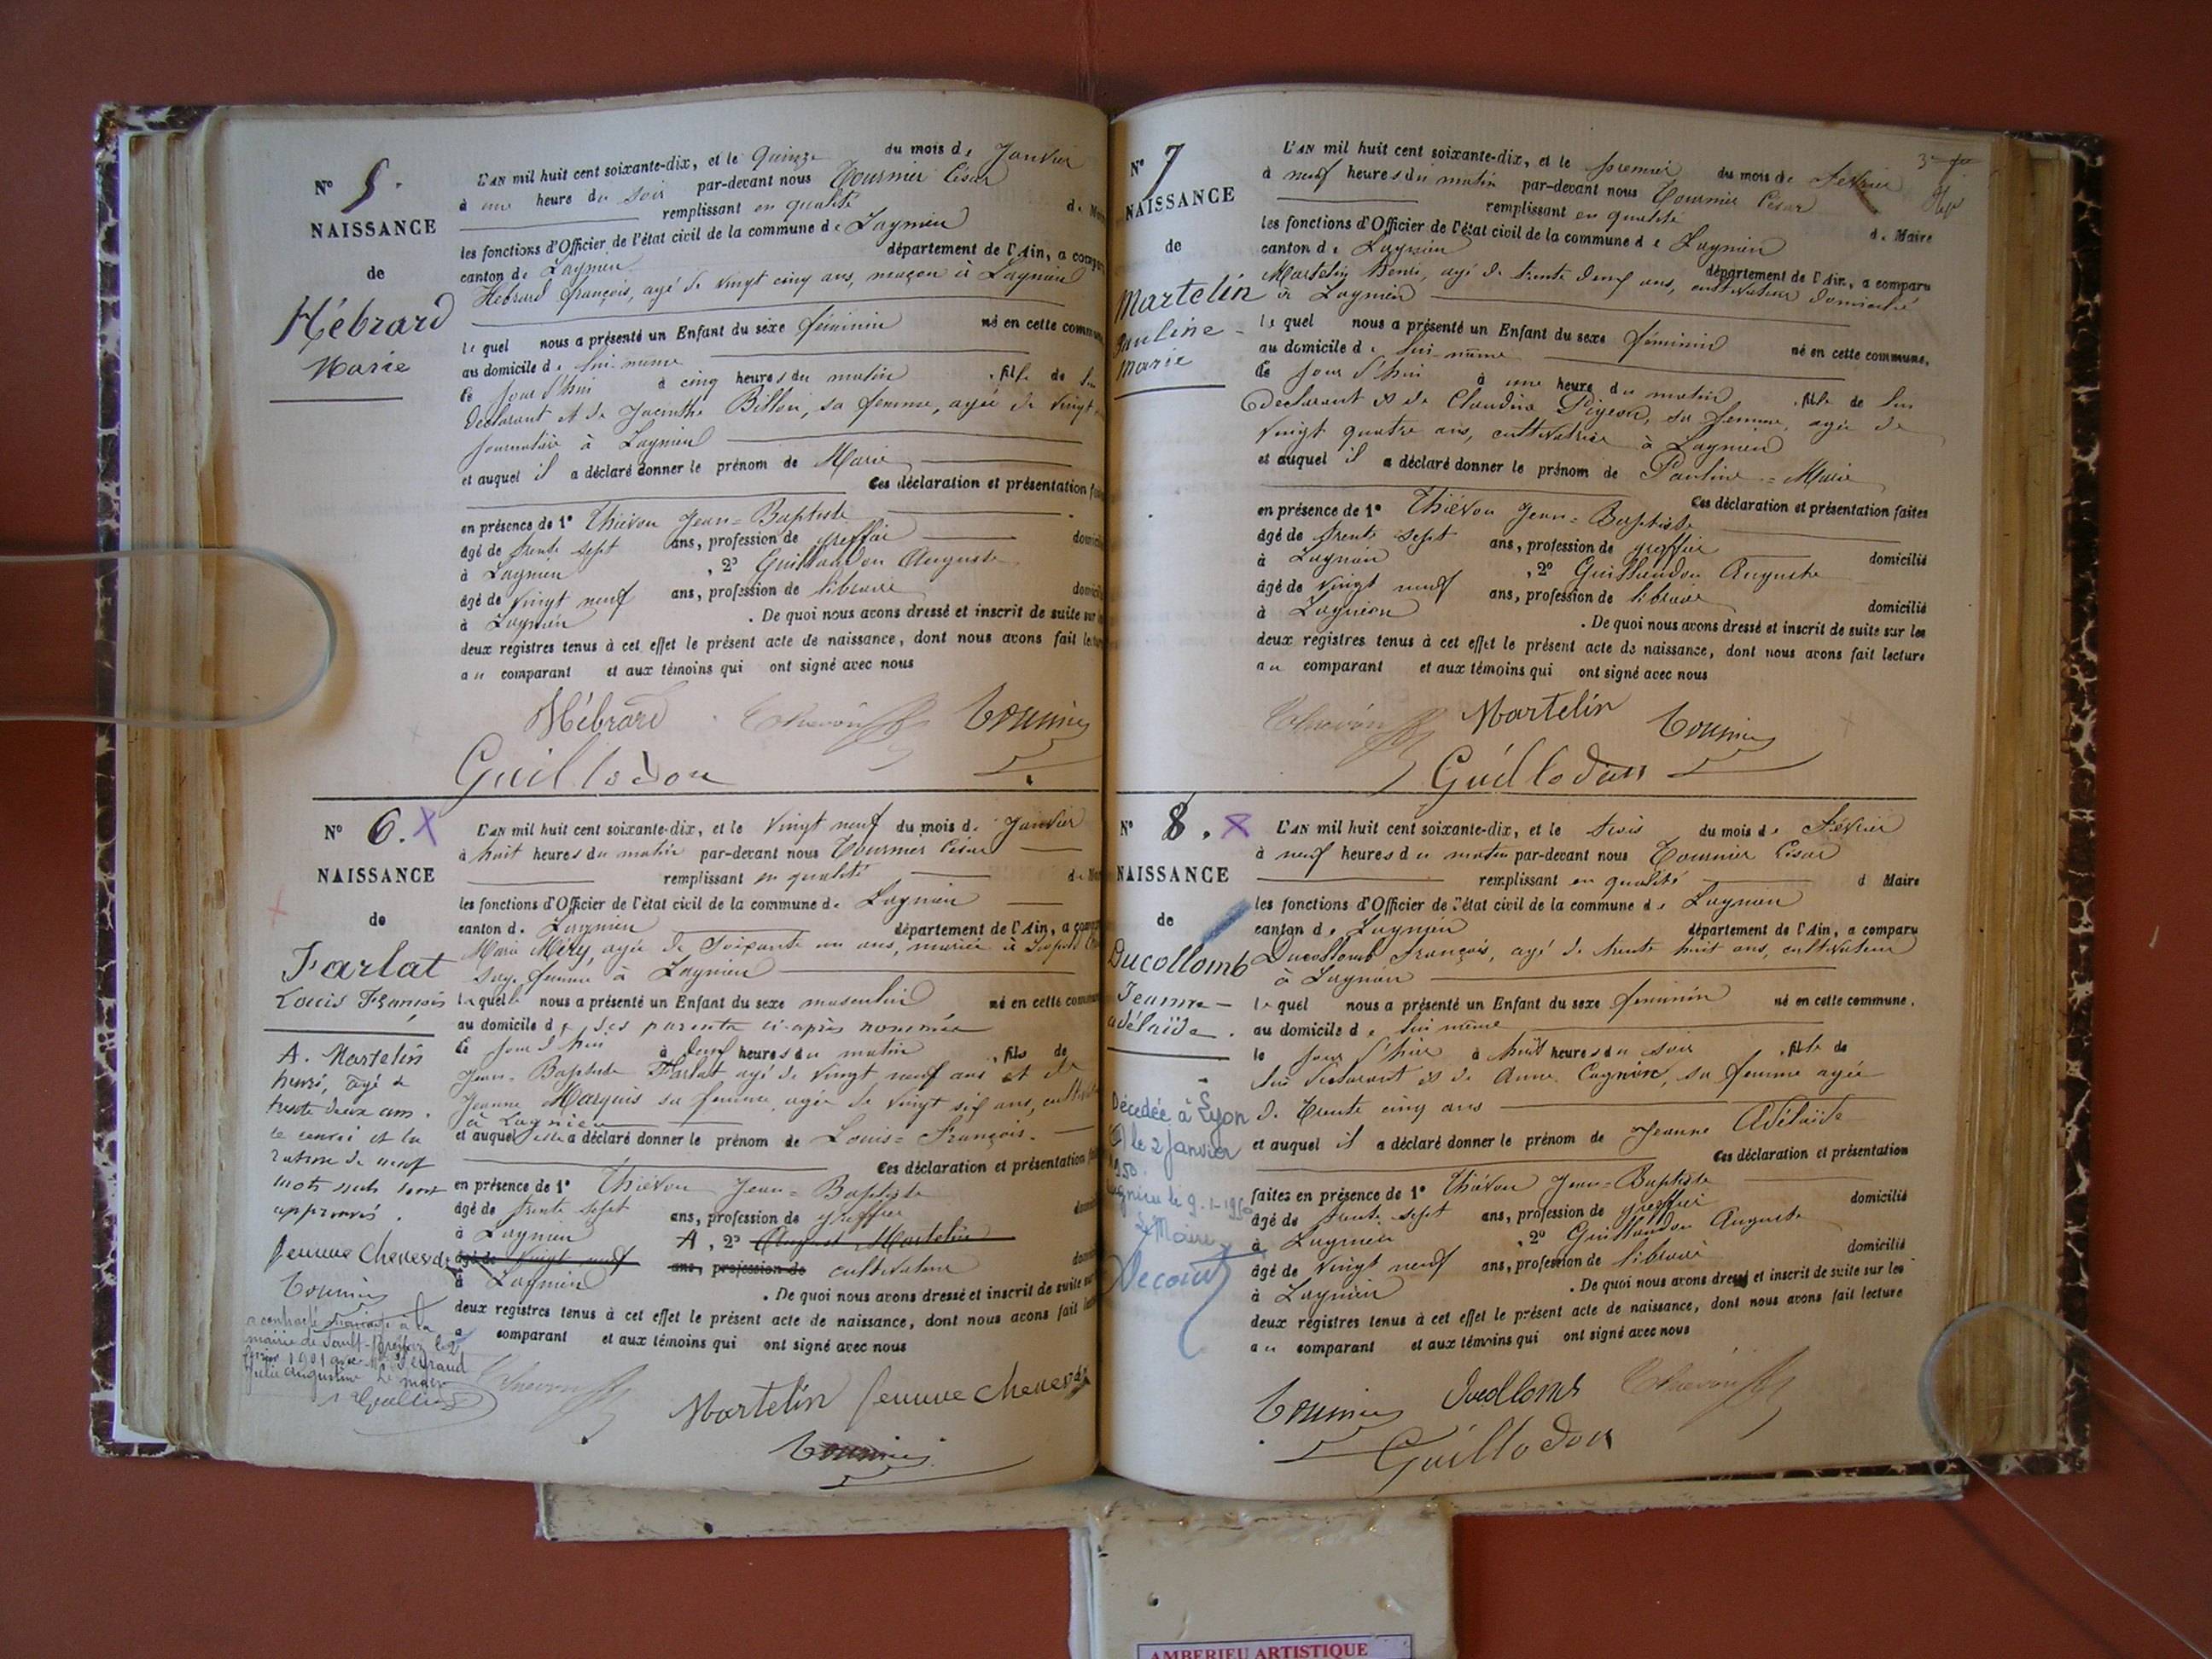 N° 5.
NAISSANCE
de
Hébrard
Marie
L'AN mil huit cent soixante-dix, et le quinze du mois de Janvier
à une heure du soir par-devant nous Tournier César
remplissant en qualité de
les fonctions d'Officier de l'état civil de la commune de Lagnieu
canton de Lagnieu département de l'Ain, a
Hébrard françois, agé de vingt cinq ans, maçon à Lagnieu
lequel nous a présenté un Enfant du sexe féminin né en cette
au domicile de lui-même
ce jour d'hui à cinq heures du matin, fille de
déclarant et de Jacinthe Billon, sa femme, agée de vingt
journalière à Lagnieu
et auquel il a déclaré donner le prénom de Marie
Ces déclaration et présentation
en présence de 1° Thiévon Jean-Baptiste
âgé de trente sept ans, profession de greffier
à Lagnieu, 2° Guillaudon Auguste
âgé de vingt neuf ans, profession de libraire
à Lagnieu. De quoi nous avons dressé et inscrit de suite sur
deux registres tenus à cet effet le présent acte de naissance, dont nous avons fait
au comparant et aux témoins qui ont signé avec nous
Hébrard Tournier
Guillodon
N° 6. X
NAISSANCE
de
Farlat
Louis François
A. Martelin
henri, agé de
trente deux ans.
le renvoi et la
rature de neuf
mots nuls sont
approuvés.
femme Chenevaz
Tournier
a contracté mariage à la
mairie de Sault-Brénaz le 2
1901 avec
Julie Augustine Le maire
L'AN mil huit cent soixante-dix, et le vingt neuf du mois de Janvier
à huit heures du matin par-devant nous Tournier César
remplissant en qualité de
les fonctions d'Officier de l'état civil de la commune de Lagnieu
canton de Lagnieu département de l'Ain, a
Marie Méry, agée de soixante un ans, mariée à
sage femme à Lagnieu
laquelle nous a présenté un Enfant du sexe masculin né en cette
au domicile de ses parents ci-après nommés
ce jour d'hui à deux heures du matin, fils de
Jean-Baptiste Farlat agé de vingt neuf ans et de
Jeanne Marquis sa femme, agée de vingt six ans,
à Lagnieu
et auquel elle a déclaré donner le prénom de Louis-François.
Ces déclaration et présentation
en présence de 1° Thiévon Jean-Baptiste
âgé de trente sept ans, profession de greffier
à Lagnieu A, 2° Martelin
âgé de vingt neuf ans, profession de cultivateur
à Lagnieu. De quoi nous avons dressé et inscrit de suite
deux registres tenus à cet effet le présent acte de naissance, dont nous avons fait
a comparant et aux témoins qui ont signé avec nous
Martelin femme Chenevaz
Tournier
N° 7
NAISSANCE
de
Martelin
Pauline-
Marie
L'AN mil huit cent soixante-dix, et le premier du mois de Février
à neuf heures du matin par-devant nous Tournier César
remplissant en qualité de Maire
les fonctions d'Officier de l'état civil de la commune de Lagnieu
canton de Lagnieu département de l'Ain, a comparu
Martelin Henri, agé de trente deux ans, cultivateur domicilié
à Lagnieu
lequel nous a présenté un Enfant du sexe féminin né en cette commune,
au domicile de lui-même
ce jour d'hui à une heure du matin, fille de lui
déclarant et de Claudine Pigeon, sa femme, agée de
vingt quatre ans, cultivatrice à Lagnieu
et auquel il a déclaré donner le prénom de Pauline-Marie
Ces déclaration et présentation faites
en présence de 1° Thiévon Jean-Baptiste
âgé de trente sept ans, profession de greffier domicilié
à Lagnieu, 2° Guillaudon Auguste
âgé de vingt neuf ans, profession de libraire domicilié
à Lagnieu. De quoi nous avons dressé et inscrit de suite sur les
deux registres tenus à cet effet le présent acte de naissance, dont nous avons fait lecture
au comparant et aux témoins qui ont signé avec nous
Martelin Tournier
Guillodon
N° 8. X
NAISSANCE
de
Ducollomb
Jeanne-
adélaïde.
Décédée à Lyon
le 2 Janvier
1950.
Lagnieu le 9-1-1950
Le Maire
L'AN mil huit cent soixante-dix, et le trois du mois de Février
à neuf heures du matin par-devant nous Tournier César
remplissant en qualité d Maire
les fonctions d'Officier de l'état civil de la commune de Lagnieu
canton de Lagnieu département de l'Ain, a comparu
Ducollomb François, agé de trente huit ans, cultivateur
à Lagnieu
lequel nous a présenté un Enfant du sexe féminin né en cette commune,
au domicile de lui même
le jour d'hier à huit heures du soir, fille de
lui déclarant et de Anne Cagnin, sa femme agée
de trente cinq ans
et auquel il a déclaré donner le prénom de Jeanne Adélaïde
Ces déclaration et présentation
faites en présence de 1° Thiévon Jean-Baptiste
âgé de trente sept ans, profession de greffier domicilié
à Lagnieu, 2° Guillaudon Auguste
âgé de vingt neuf ans, profession de libraire domicilié
à Lagnieu. De quoi nous avons dressé et inscrit de suite sur les
deux registres tenus à cet effet le présent acte de naissance, dont nous avons fait lecture
au comparant et aux témoins qui ont signé avec nous
Tournier Ducllomb
Guillodon
AMBERIEU ARTISTIQUE